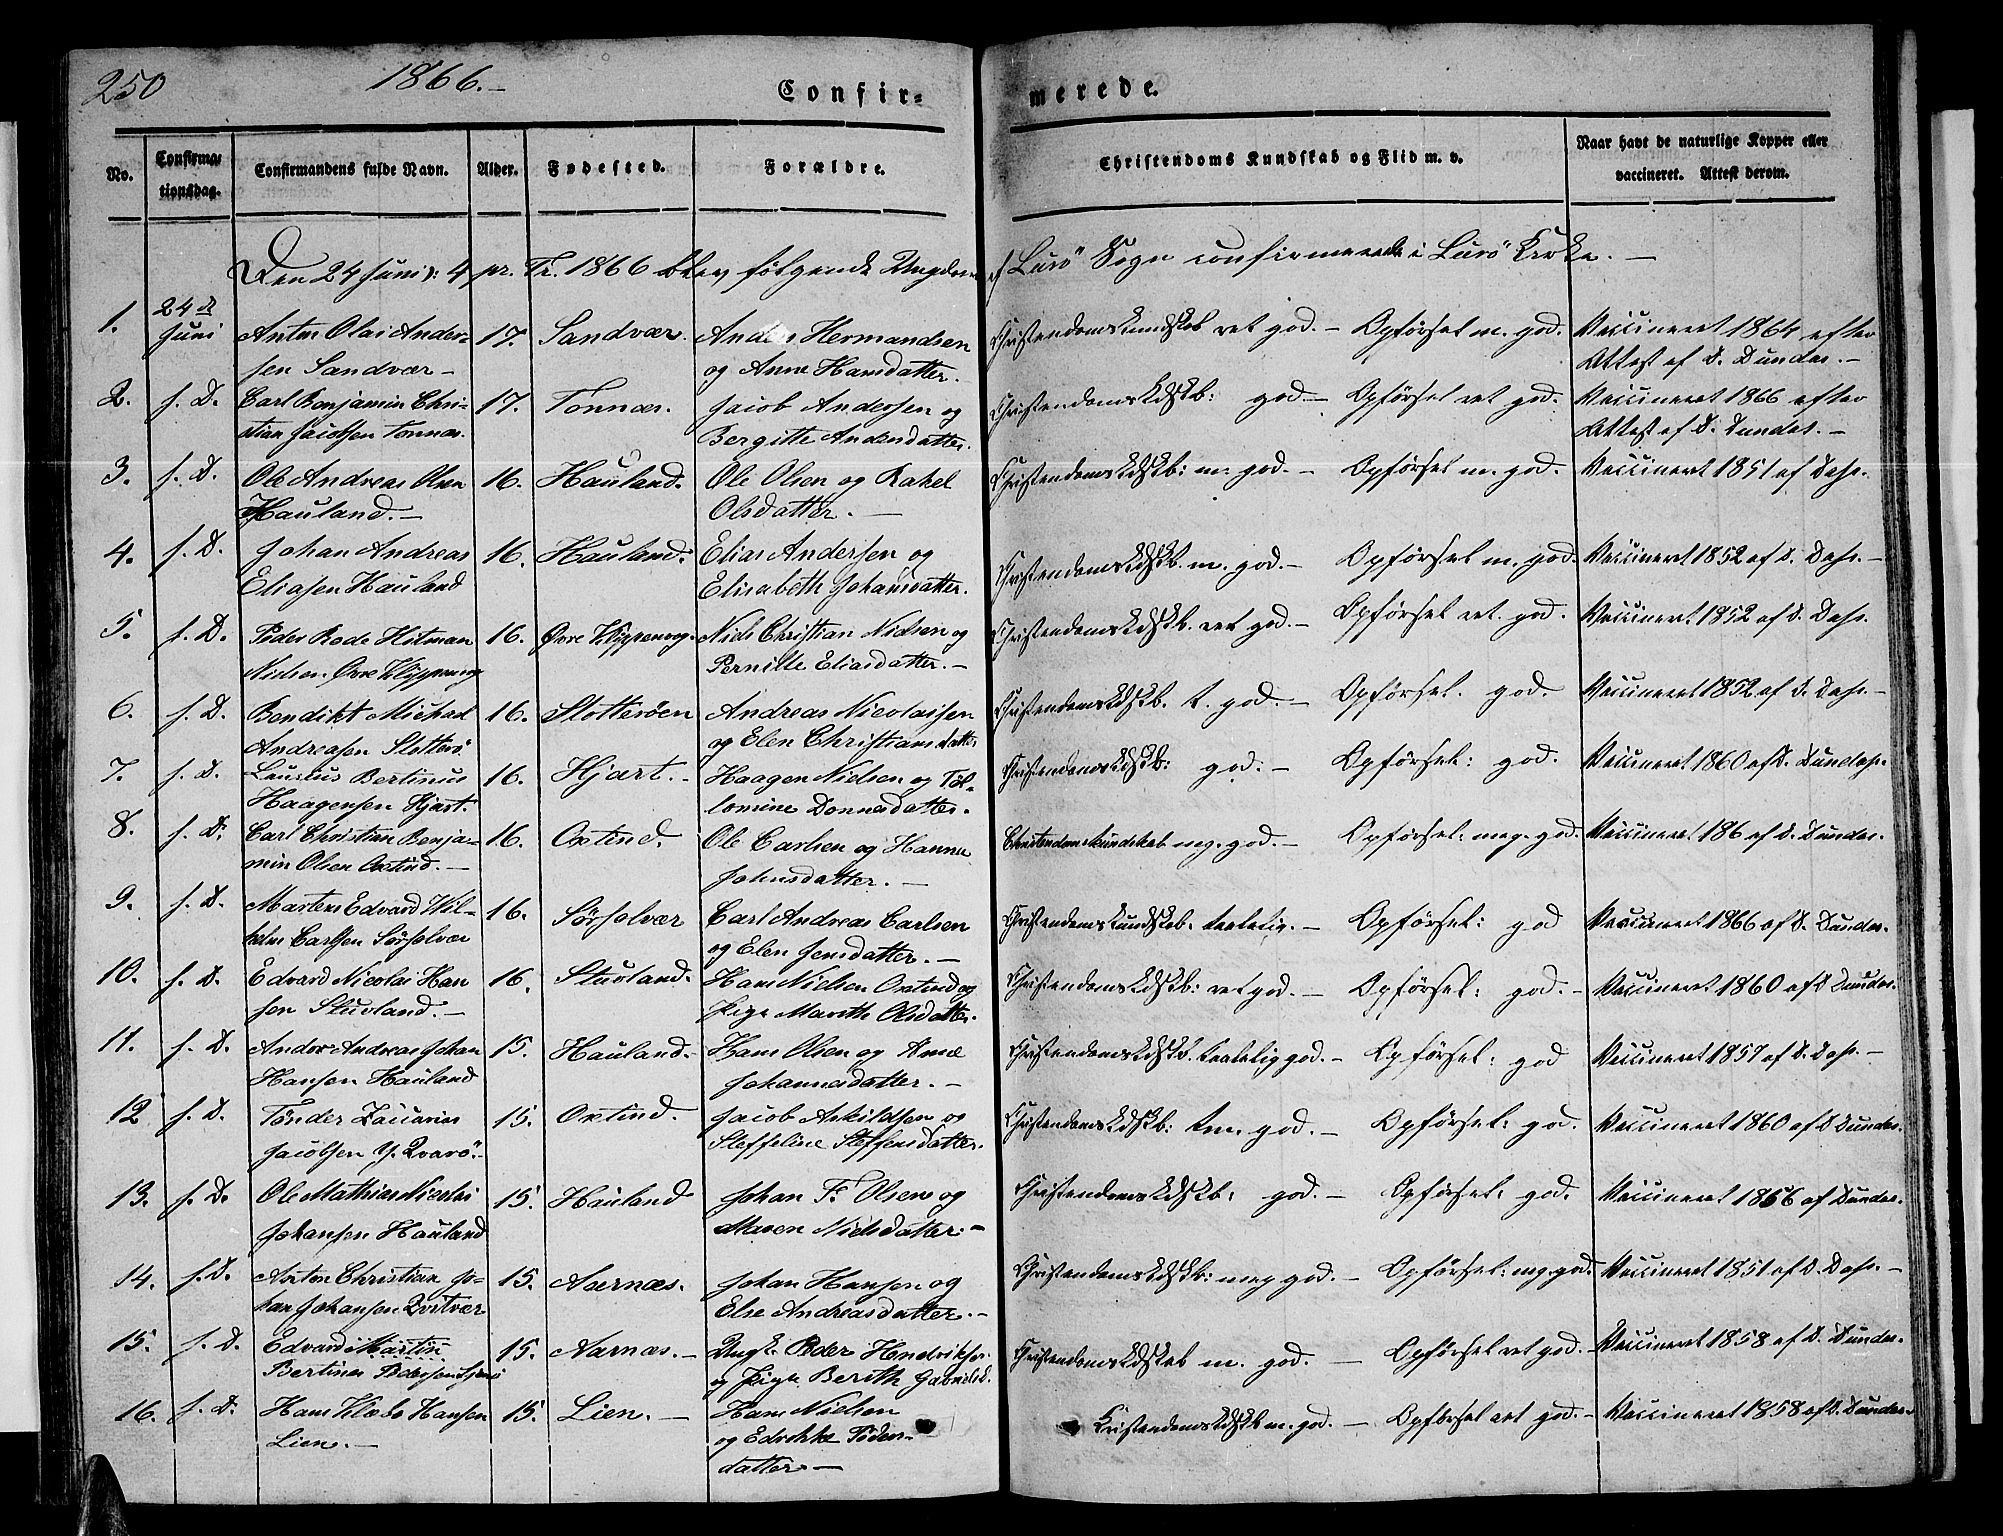 250 1866.- Confir= merede.
No. Confirma= tionsdag. Confirmandens fulde Navn. Alder. Fødested. Forældre. Christendoms Kundskab og Flid m. v. Naar havt de naturlige Kopper eller vaccineret. Attest derom.
Den 24 Juni 4 p. Tr. 1866 blev følgende Ungdom af Lurö Sogn confirmerede i Lurö Kirke. -
1. 24d Juni Anton Olai Ander- 17. Sandvær. Anders Hermandsen Christendomskundskab ret god. - Opførsel m. god. Vaccineret 1864 efter
sen Sandvær - og Anne Hansdatter. Attest af D. Dundas. -
2. s. D. Carl Benjamin Chri- 17. Tonnæs. Jacob Andersen og Christendomskdskb: god. - Opførsel ret god. Vaccineret 1866 efter
stian Jacobsen Tonnæs. Bergitte Andersdatter. Attest af D. Dundas. -
3. s. D. Ole Andreas Olsen 16. Hauland. Ole Olsen og Rakel Christendomskdskb: m. god. - Opførsel m. god. Vaccineret 1851 af Dahe.
Hauland. - Olsdatter. -
4. s. D. Johan Andreas 16. Hauland. Elias Andersen og Christendomskdskb. m. god. - Opførsel m. god. Vaccineret 1852 af D. Dahe. -
Eliasen Hauland Elisabeth Johansdatter.
5. s. D. Peder Bode Hitman 16. Øvre Klippenvog. Niels Christian Nielsen og Christendomskdskb. ret god. - Opførsel ret. god. Vaccineret 1852 af D. Dahe.
Nielsen Øvre Klippenvog Pernille Eliasdatter. -
6. s. D. Bendikt Michael 16. Slotterøen Andreas Nicolaisen Christendomskdskb. t. god. - Opførsel. god. Vaccineret 1852 af D. Dahe -
Andreasen Slotterö og Elen Christiansdatter
7. s. D. Laurits Bertinus 16. Hjart. - Haagen Nielsen og Tol- Christendomskdskb: god. - Opførsel: god. Vaccineret 1860 af D. Dundas.
Haagensen Hjart. lomine Donnesdatter.
8. s. D. Carl Christian Benja- 16. Oxtind. Ole Carlsen og Hanna Christendomskundskab meg. god. - Opførsel: meg. god. Vaccineret 186 af D. Dundas.
min Olsen Oxtind. - Johnsdatter. -
9. s. D. Martens Edvard Wil- 16. Sørsolvær Carl Andreas Carlsen Christendomskundskab. taalelig. - Opførsel: god Vaccineret 1866 af D. Dundas.
helm Carlsen Sørsolvær og Elen Jensdatter. -
10. s. D. Edvard Nicolai Han 16. Stuvland. Hans Nielsen Oxtind og Christendomskdskb: ret god. - Opførsel: god. - Vaccineret 1860 af D Dundas.
sen Stuvland. - Pige Marith Olsdatter.
11. s. D. Anders Andreas Johan 15. Hauland. Hans Olsen og Ane Christendomskdskb. taalelig god. - Opførsel: god Vaccineret 1857 af D. Dahe -
Hansen Hauland Johannesdatter. -
12 s. D. Tönder Zacarias 15. Oxtind. Jacob Askildsen og Christendomskdskb: tm. god. - Opførsel: god. Vaccineret 1860 af D Dundas.
Jacobsen Y. Qvarö. Steffeline Steffensdatter.
13. s. D. Ole Mathias Nicolai 15. Hauland Johan F. Olsen og Christendomskdskb: god. - Opførsel: god. Vaccineret 1866 af Dundas.
Johansen Hauland Maren Nielsdatter. -
14. s. D. Anton Christian Jo- 15. Aarnæs. Johan Hansen og Christendomskdskb: meg god. - Opførsel: mg. god. Vaccineret 1851 af D. Dahe. -
han Johansen Qvitvær Else Andreasdatter. -
15. s. D. Edvard Martin 15. Aarnæs. - Ungk. Peder Hendriksen Christendomskdskab m. god. - Opførsel ret god. - Vaccineret 1858 af D. Dundas.
Bertines Pedersen og Pige Berith Gabrielsd.
16. s. D. Hans Klæbo Hansen 15. Lien. - Hans Nielsen Kristendomskdskb m. god. - Opførsel ret god. - Vaccineret 1858 af D. Dundas.
Lien. - og Edrikke Peders-
datter. -